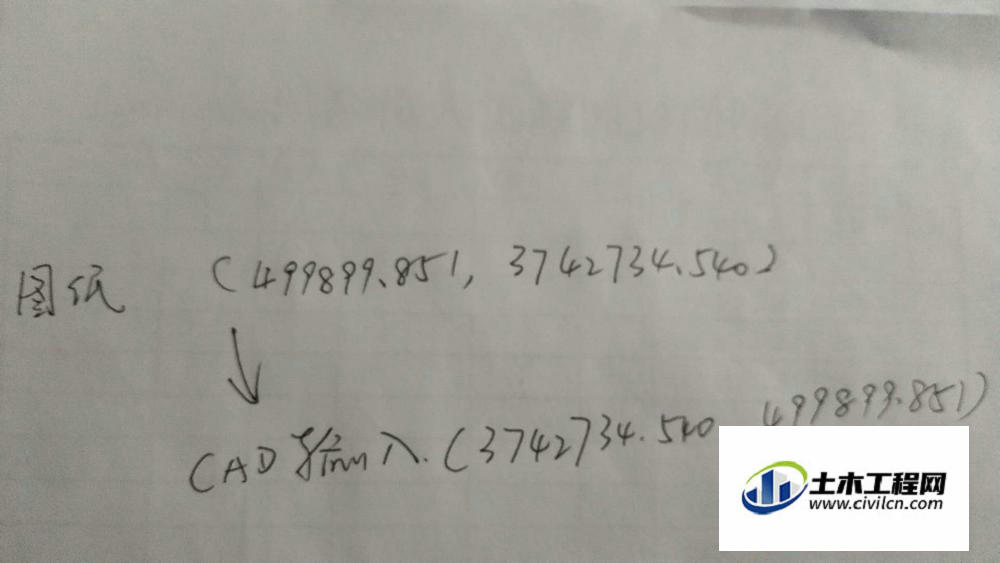 图纸 (499899.851, 3742734.540)
CAD输入.(3742734.540 499899.851)
土木工程网
www.civilcn.com